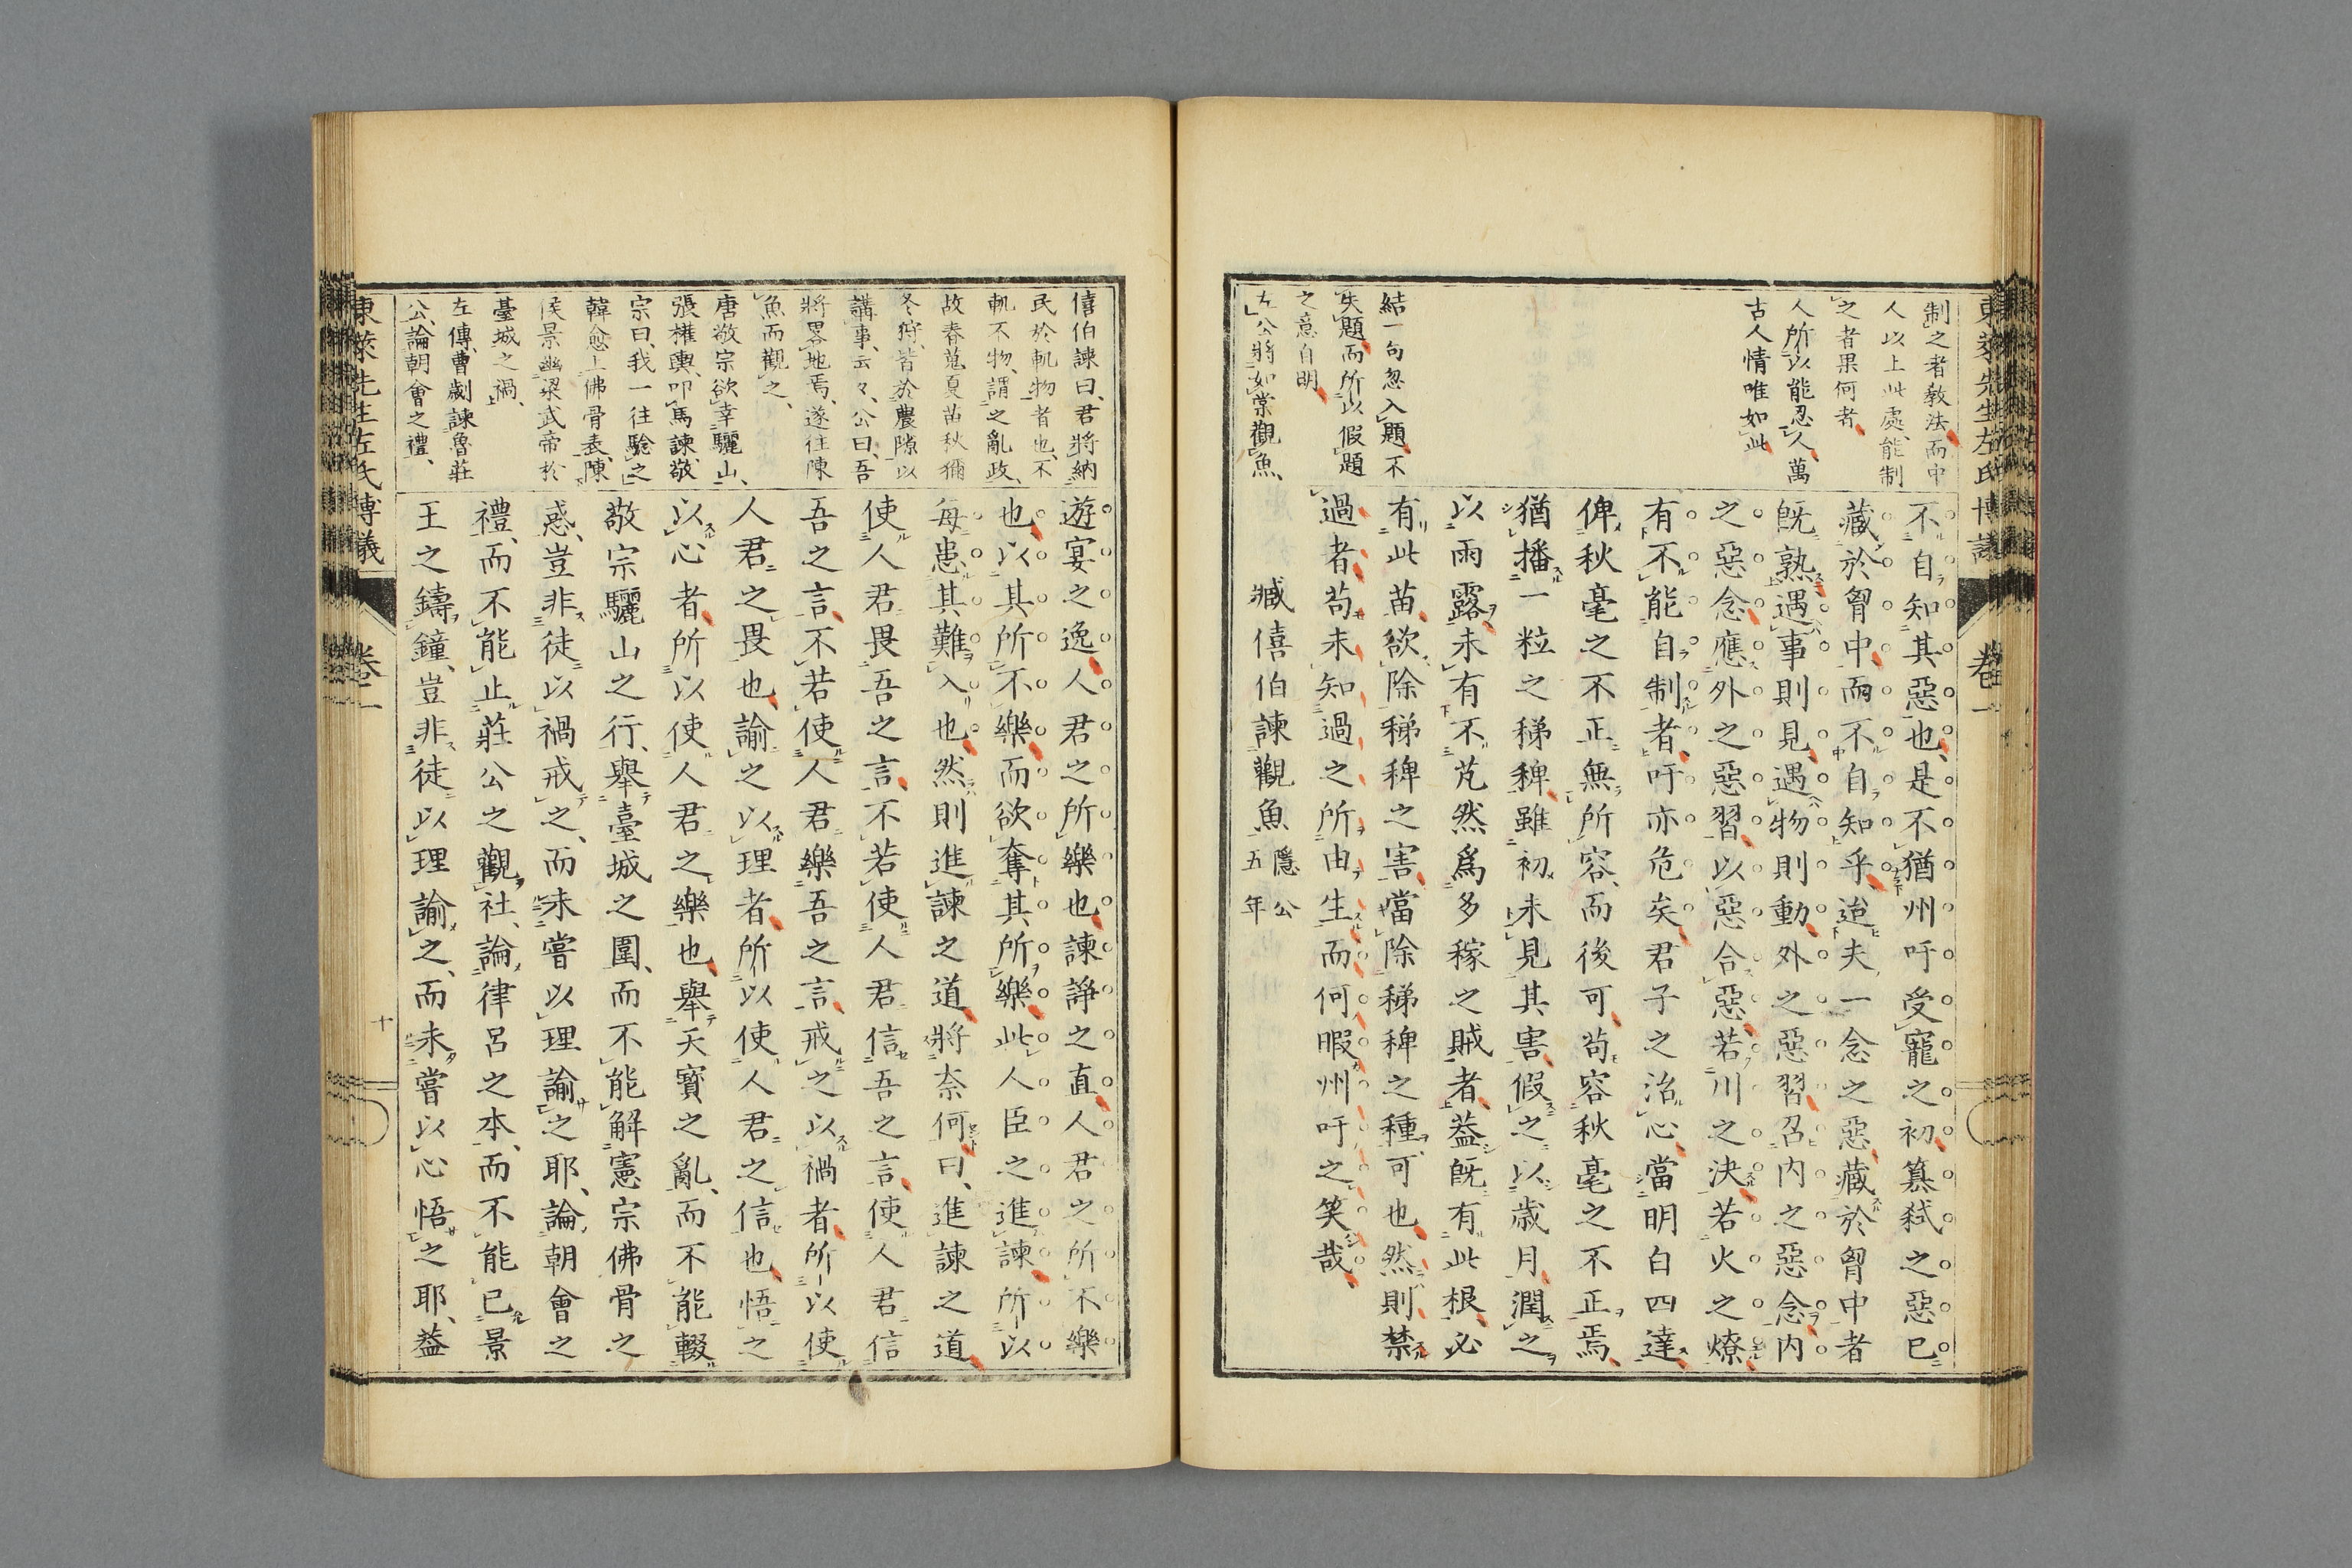 東萊先生左氏博議
卷一
制之者教法而中
人以上此處能制
之者果何者
人所以能忍人萬
古人情唯如此
結一句忽入題不
失題而所以假題
之意自明
左公將如棠觀魚
不自知其惡也是不猶州吁受寵之初篡弒之惡已
藏於胷中而不自知乎迨夫一念之惡藏於胷中者
旣熟遇事則見遇物則動外之惡習召内之惡念内
之惡念應外之惡習以惡合惡若川之決若火之燎
有不能自制者吁亦危矣君子之治心當明白四達
俾秋毫之不正無所容而後可苟容秋毫之不正焉
猶播一粒之稊稗雖初未見其害假之以歳月潤之
以雨露未有不芃然爲多稼之賊者葢旣有此根必
有此苗欲除稊稗之害當除稊稗之種可也然則禁
過者苟未知過之所由生而何暇州吁之笑哉
臧僖伯諫觀魚隱公
五年
僖伯諫曰、君將納
民於軌物者也、不
軌不物、謂之亂政、
故春蒐夏苗秋獮
冬狩、皆於農隙以
講事、云々、公曰、吾
將畧地焉、遂往陳
魚而觀之、
唐敬宗欲幸驪山、
張權輿、叩馬諫、敬
宗曰、我一往驗之
韓愈上佛骨表、陳
侯景幽梁武帝於
臺城之禍、
左傳、曹劌諫魯莊
公、論朝會之禮、
遊宴之逸人君之所樂也諫諍之直人君之所不樂
也以其所不樂而欲奪其所樂此人臣之進諫所以
每患其難入也然則進諫之道將奈何曰、進諫之道
使人君畏吾之言不若使人君信吾之言使人君信
吾之言不若使人君樂吾之言戒之以禍者所以使
人君之畏也諭之以理者所以使人君之信也悟之
以心者所以使人君之樂也舉天寳之亂、而不能輟
敬宗驪山之行、舉臺城之圍、而不能解憲宗佛骨之
惑、豈非徒以禍戒之、而未嘗以理諭之耶、論朝會之
禮、而不能止莊公之觀社、論律呂之本、而不能已景
王之鑄鐘、豈非徒以理諭之、而未嘗以心悟之耶、葢
東萊先生左氏博議
卷一
十